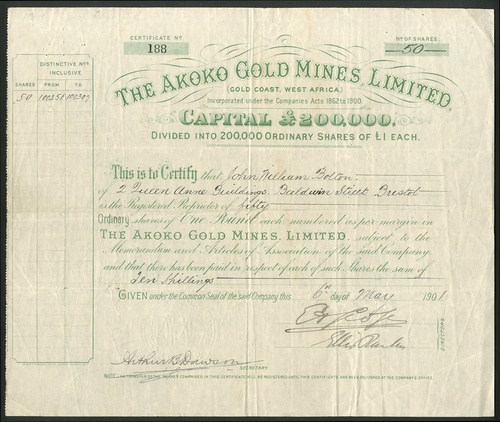 CERTIFICATE Nº
188
Nº OF SHARES.
50
DISTINCTIVE Nºs
INCLUSIVE.
SHARES FROM TO
50
THE AKOKO GOLD MINES, LIMITED.
(GOLD COAST, WEST AFRICA.)
Incorporated under the Companies Acts 1862 to 1900.
CAPITAL £200,000,
DIVIDED INTO 200,000 ORDINARY SHARES OF £1 EACH.
This is to Certify that John William Bolton
of 2 Queen Anne Buildings, Baldwin Street Bristol
is the Registered Proprietor of Fifty
Ordinary shares of One Pound each, numbered as per margin in
THE AKOKO GOLD MINES, LIMITED, subject to the
Memorandum and Articles of Association of the said Company
and that there has been paid in respect of each of such Shares the sum of
Ten Shillings
GIVEN under the Common Seal of the said Company this 6th day of May 1901
DIRECTORS
Arthur B. Dawson
SECRETARY
NOTE: NO TRANSFER OF THIS CERTIFICATE WILL BE REGISTERED UNTIL THIS CERTIFICATE HAS BEEN DELIVERED AT THE COMPANY'S OFFICE.